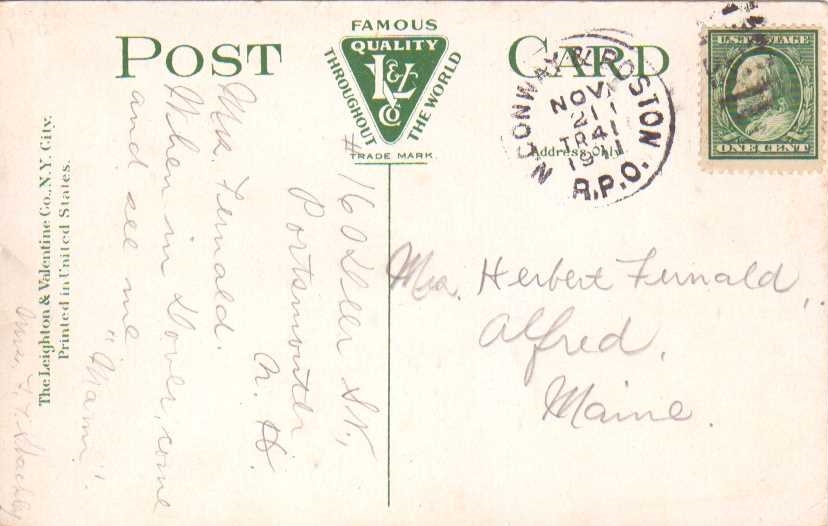 POST CARD
FAMOUS
QUALITY
L&V Co
THROUGHOUT THE WORLD
TRADE MARK.
Address Only
N CONWAY & BOSTON
NOV
21
TR 41
1911
R.P.O.
U.S. POSTAGE
ONE CENT
The Leighton & Valentine Co., N.Y. City.
Printed in United States.
Mrs. Fernald.
When in Dover, come
and see me
"Mamie".
# 160 St.,
Portsmouth
N. H.
Mrs. Herbert Fernald,
Alfred,
Maine.